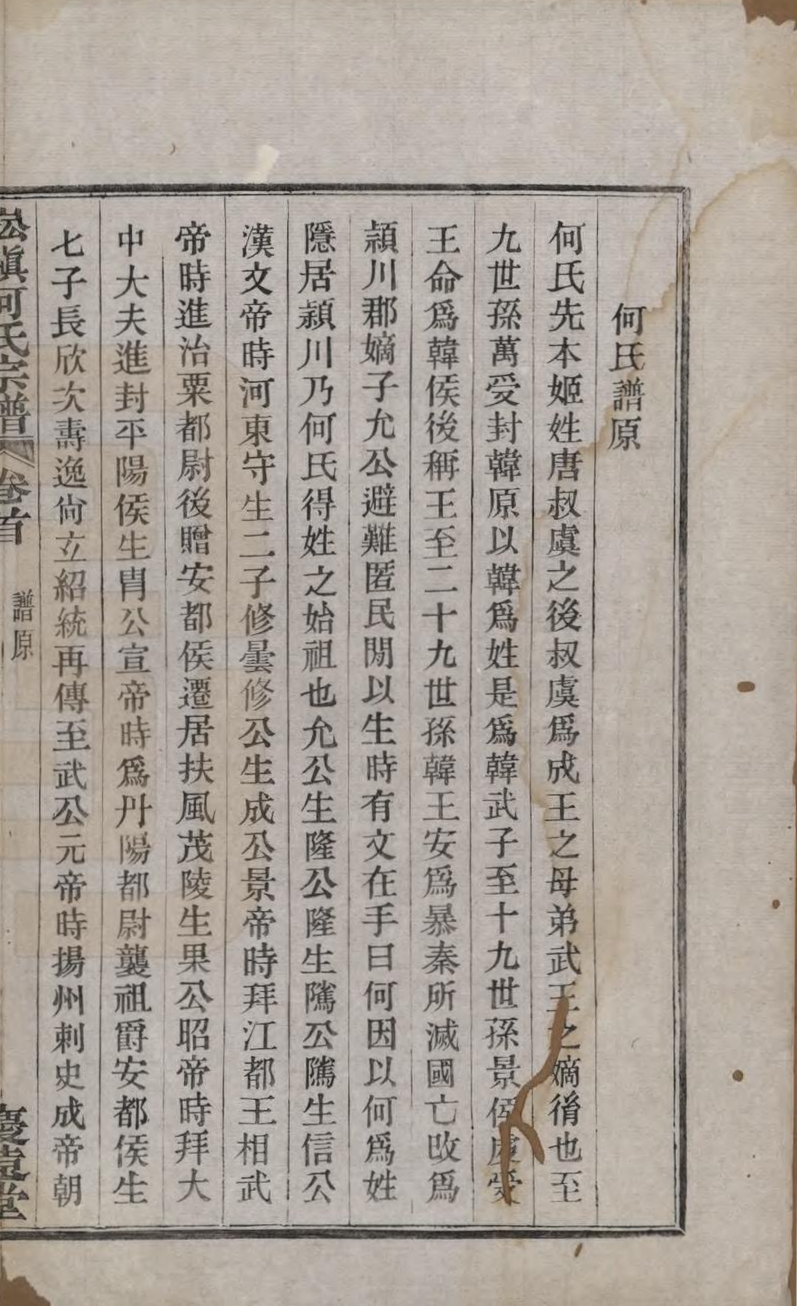 何氏譜原
何氏先本姬姓唐叔虞之後叔虞爲成王之母弟武王之嫡㣧也至
九世孫萬受封韓原以韓爲姓是爲韓武子至十九世孫景侯虔受
王命爲韓侯後稱王至二十九世孫韓王安爲暴秦所滅國亡改爲
潁川郡嫡子允公避難匿民間以生時有文在手曰何因以何爲姓
隱居潁川乃何氏得姓之始祖也允公生隆公隆生隲公隲生信公
漢文帝時河東守生二子修曇修公生成公景帝時拜江都王相武
帝時進治粟都尉後贈安都侯遷居扶風茂陵生果公昭帝時拜大
中大夫進封平陽侯生胄公宣帝時爲丹陽都尉襲祖爵安都侯生
七子長欣次壽逸尙立紹統再傳至武公元帝時揚州刺史成帝朝
何氏宗譜 卷首 譜原